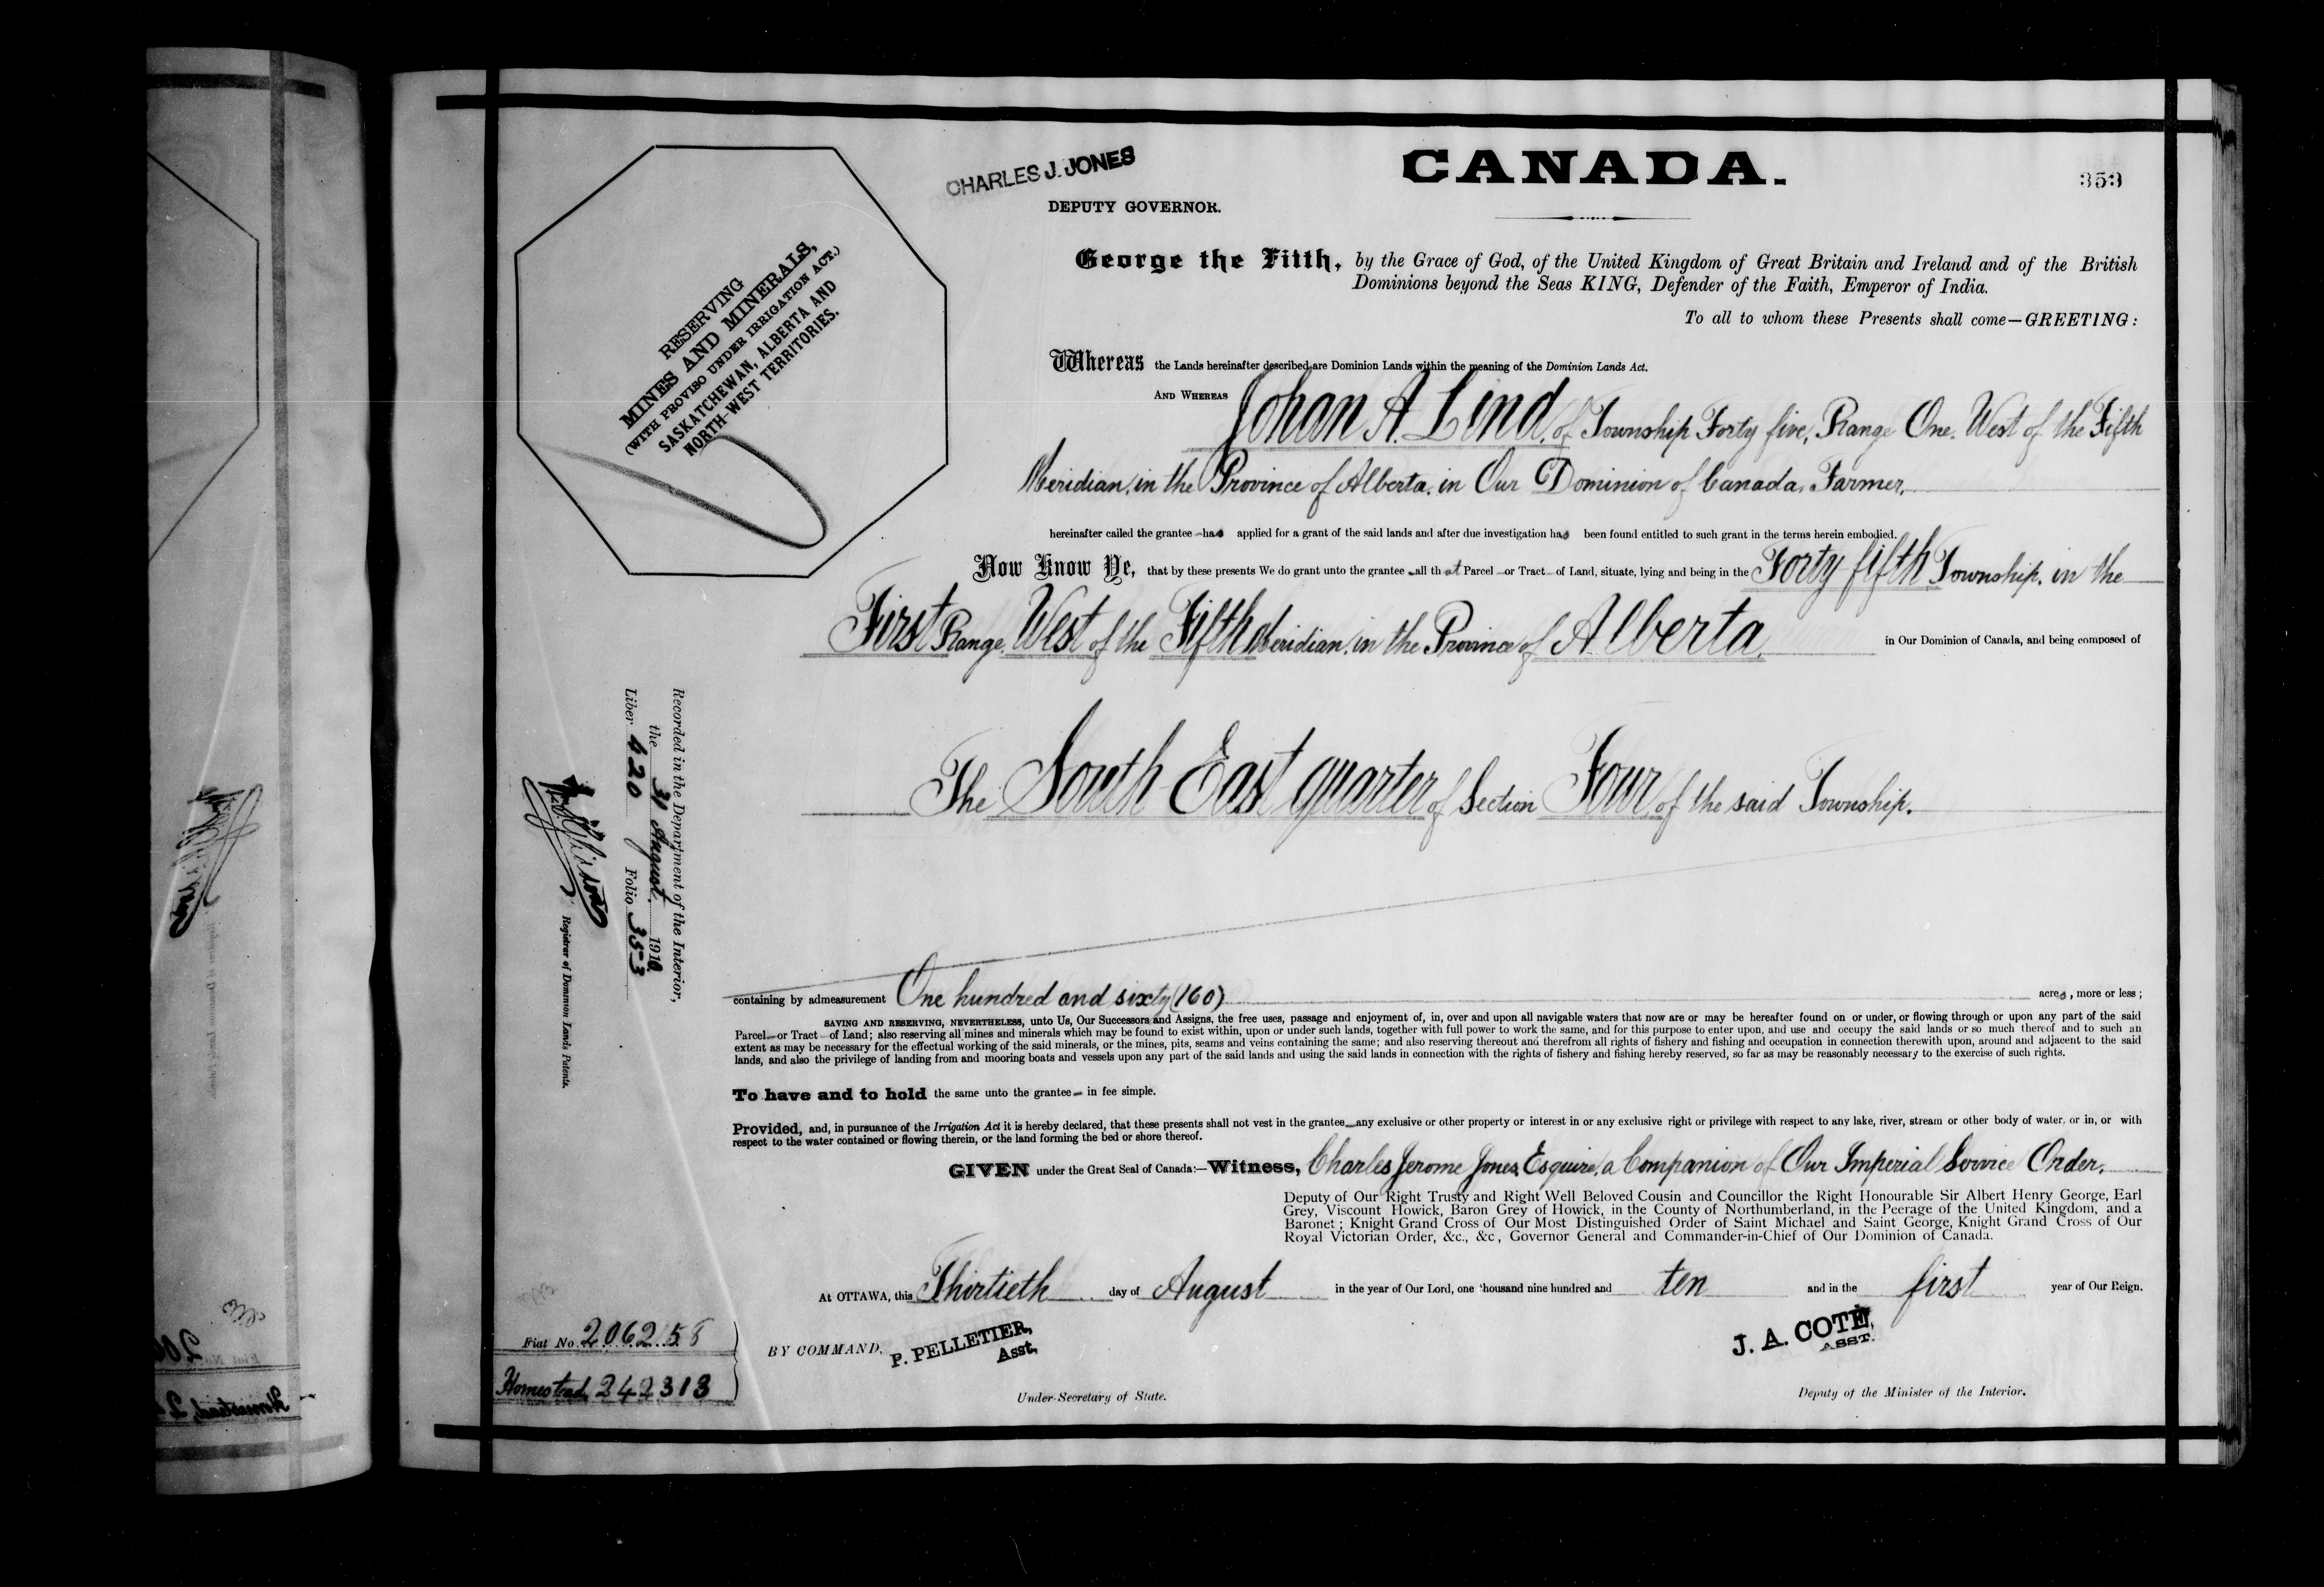 CANADA.
353
CHARLES J. JONES
DEPUTY GOVERNOR.
RESERVING
MINES AND MINERALS,
(WITH PROVISO UNDER IRRIGATION ACT.)
SASKATCHEWAN, ALBERTA AND
NORTH-WEST TERRITORIES.
George the Fifth, by the Grace of God, of the United Kingdom of Great Britain and Ireland and of the British
Dominions beyond the Seas KING, Defender of the Faith, Emperor of India.
To all to whom these Presents shall come—GREETING:
Whereas the Lands hereinafter described are Dominion Lands within the meaning of the Dominion Lands Act.
AND WHEREAS Johan A. Lind, of Township Forty five, Range One. West of the Fifth
Meridian, in the Province of Alberta, in Our Dominion of Canada, Farmer,
hereinafter called the grantee has applied for a grant of the said lands and after due investigation has been found entitled to such grant in the terms herein embodied.
Now Know Ye, that by these presents We do grant unto the grantee all that Parcel or Tract of Land, situate, lying and being in the Forty fifth Township, in the
First Range, West of the Fifth Meridian, in the Province of Alberta, in Our Dominion of Canada, and being composed of
The South East quarter of Section Four of the said Township.
containing by admeasurement One hundred and sixty (160) acres, more or less;
SAVING AND RESERVING, NEVERTHELESS, unto Us, Our Successors and Assigns, the free uses, passage and enjoyment of, in, over and upon all navigable waters that now are or may be hereafter found on or under, or flowing through or upon any part of the said
Parcel or Tract of Land; also reserving all mines and minerals which may be found to exist within, upon or under such lands, together with full power to work the same, and for this purpose to enter upon, and use and occupy the said lands or so much thereof and to such an
extent as may be necessary for the effectual working of the said minerals, or the mines, pits, seams and veins containing the same; and also reserving thereout and therefrom all rights of fishery and fishing and occupation in connection therewith upon, around and adjacent to the said
lands, and also the privilege of landing from and mooring boats and vessels upon any part of the said lands and using the said lands in connection with the rights of fishery and fishing hereby reserved, so far as may be reasonably necessary to the exercise of such rights.
To have and to hold the same unto the grantee in fee simple.
Provided, and, in pursuance of the Irrigation Act it is hereby declared, that these presents shall not vest in the grantee any exclusive or other property or interest in or any exclusive right or privilege with respect to any lake, river, stream or other body of water, or in, or with
respect to the water contained or flowing therein, or the land forming the bed or shore thereof.
GIVEN under the Great Seal of Canada:—Witness, Charles Jerome Jones, Esquire, a Companion of Our Imperial Service Order,
Deputy of Our Right Trusty and Right Well Beloved Cousin and Councillor the Right Honourable Sir Albert Henry George, Earl
Grey, Viscount Howick, Baron Grey of Howick, in the County of Northumberland, in the Peerage of the United Kingdom, and a
Baronet; Knight Grand Cross of Our Most Distinguished Order of Saint Michael and Saint George, Knight Grand Cross of Our
Royal Victorian Order, &c., &c, Governor General and Commander-in-Chief of Our Dominion of Canada.
At OTTAWA, this Thirtieth day of August in the year of Our Lord, one thousand nine hundred and ten and in the first year of Our Reign.
BY COMMAND,
P. PELLETIER,
Asst,
Under-Secretary of State.
J. A. COTÉ,
ASST.
Deputy of the Minister of the Interior.
Recorded in the Department of the Interior,
the 31 August 1910
Liber 420 Folio 353
Registrar of Dominion Lands Patents.
Fiat No. 206258
Homestead 242313